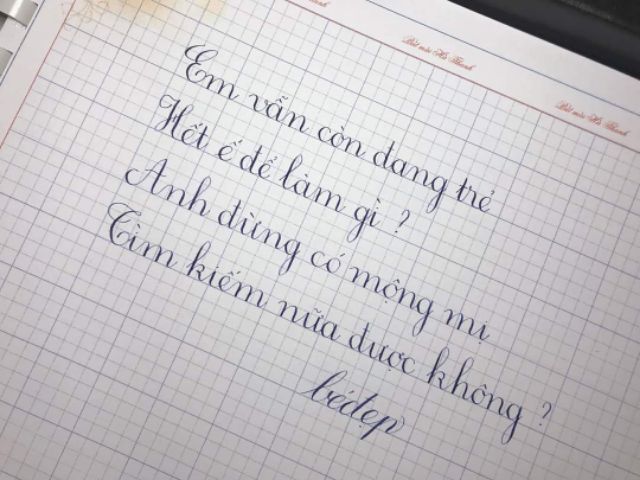 Bút mài Hà Thanh
Bút mài Hà Thanh
Em vẫn còn đang trẻ
Hết ế để làm gì ?
Anh đừng có mộng mị
Tìm kiếm nữa được không ?
bédẹp